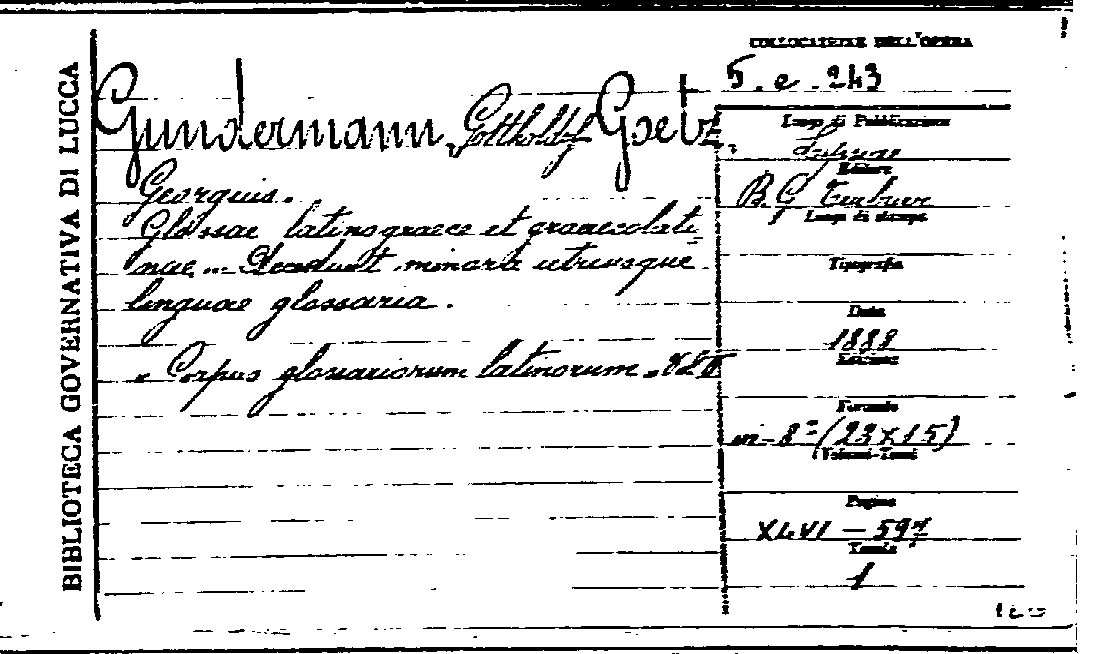 BIBLIOTECA GOVERNATIVA DI LUCCA
COLLOCAZIONE DELL'OPERA
5. e. 243
Gundermann, Gotthold, Goetz,
Georgius.
Glossae latinograecae et graecolati-
nae ... Accedunt minora utriusque
linguae glossaria.
" Corpus glossariorum latinorum "
Luogo di Pubblicazione
Lipsiae
Editore
B. G. Teubner
Luogo di stampa
Tipografia
Data
1888
Edizione
Formato
in-8° (23x15)
Volumi-Tomi
Pagine
XLVI - 597
Tavole
1